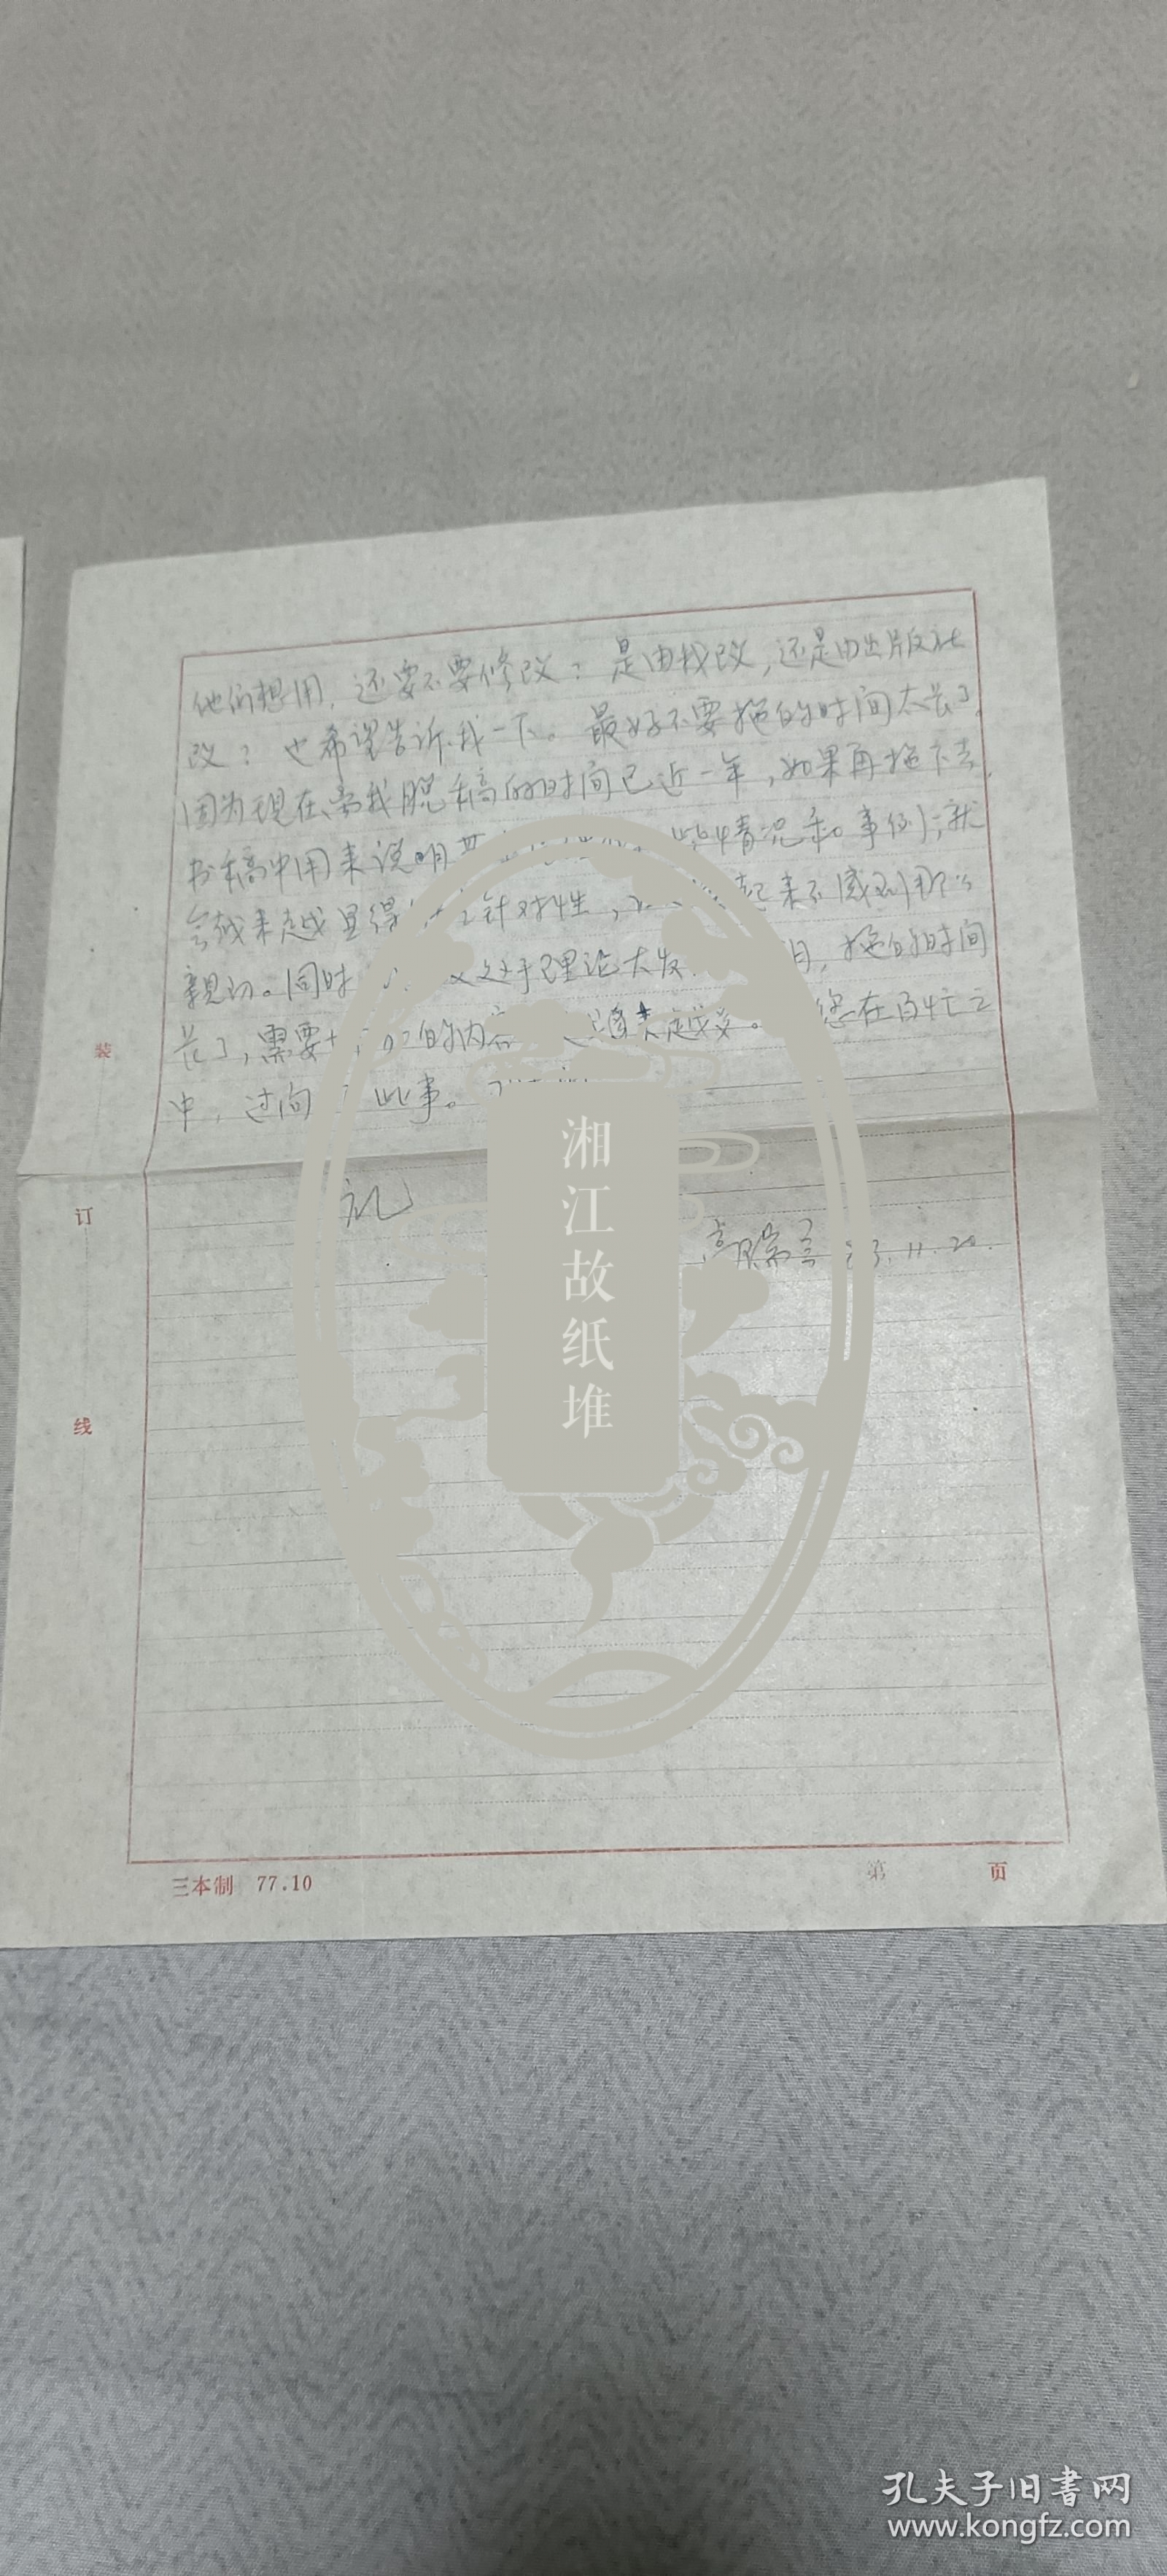 他们想用，还要不要修改？是由我改，还是由出版社
改？也希望告诉我一下。最好不要拖的时间太长了，
因为现在离我脱稿的时间已近一年，如果再拖下去，
书稿中用来说明 情况和事例，就
会越来越显得 针对性， 起来不感到那么
亲切。同时 处于理论大发 ，拖的时间
长了，需要 的内容 越来越多。 您在百忙之
中，过问 此事。
礼
高瑞 3.11.20.
装
订
线
三本制 77.10
第 页
湘江故纸堆
孔夫子旧书网
www.kongfz.com